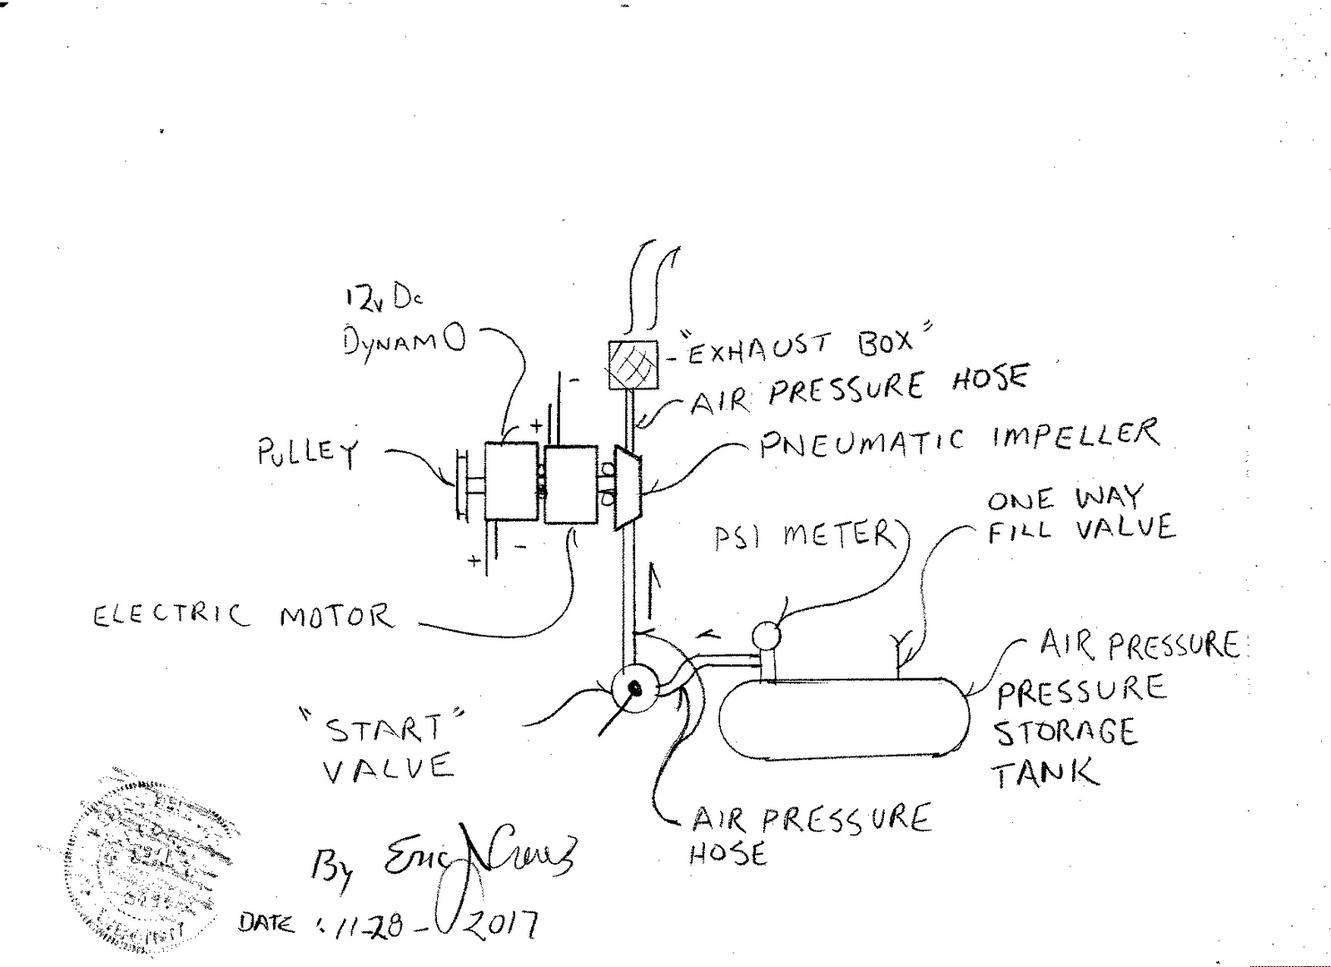 12v Dc
DYNAMO
"EXHAUST BOX"
AIR PRESSURE HOSE
PULLEY
+
-
PNEUMATIC IMPELLER
ONE WAY
FILL VALVE
PSI METER
+
-
ELECTRIC MOTOR
AIR PRESSURE
PRESSURE
STORAGE
TANK
"START"
VALVE
AIR PRESSURE
HOSE
By Eric
DATE: 11-28-2017